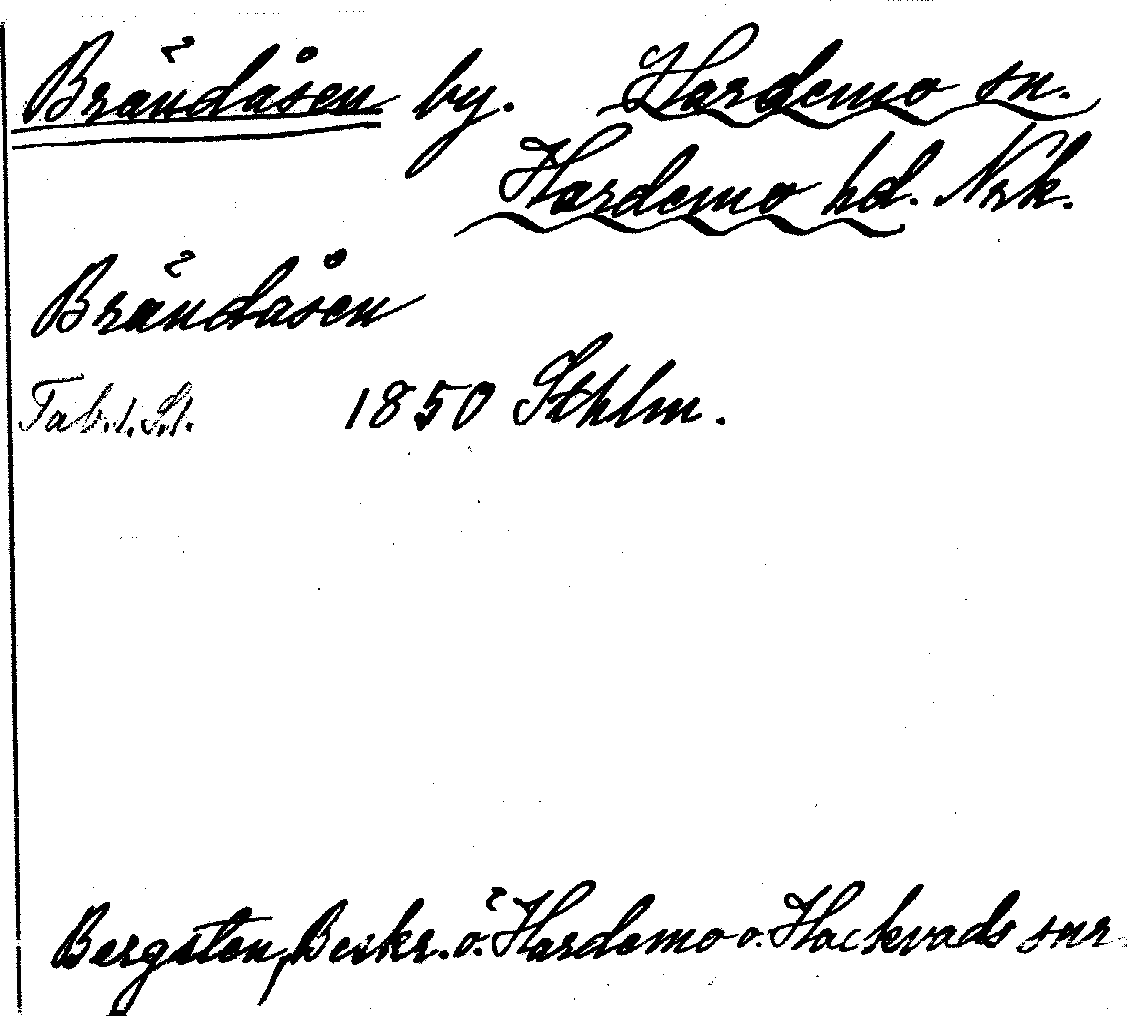 Brändåsen by. Hardemo sn.
Hardemo hd. Nrk.
Brändåsen
Tab. 1. St. 1850 Sthlm.
Bergsten, Beskr. ö. Hardemo o. Hackvads snr